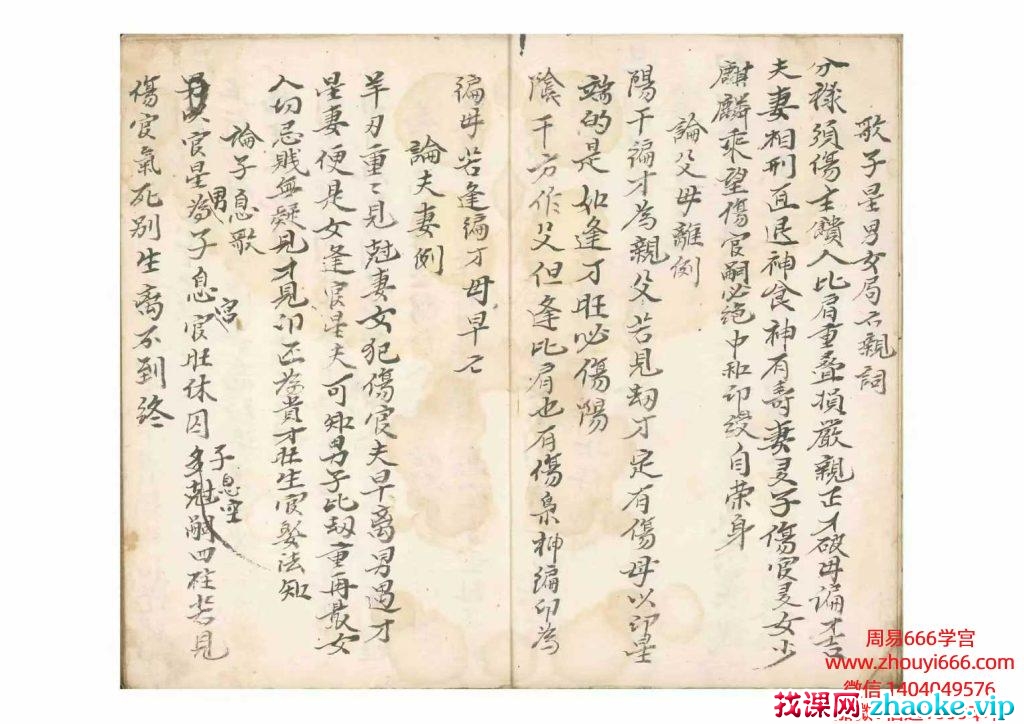 歌子星男女局不親詞
分祿須傷主饋人比肩重疊損嚴親正才破母論才
夫妻相刑直退神食神有壽妻是子傷官是女少
麒麟乘望傷官嗣必絕中和印綬自荣身
論父母離例
陽干遍才為親父若見刼才定有傷母以印星
端的是如逢才旺必傷陽
陰干方作父但逢比肩也有傷梟神編印為
編母若逢編才母早亡
論夫妻例
羊刃重〻見尅妻女犯傷官夫早离男遇才
星妻便是女逢官星夫可知男子比刼重再娶女
人切忌賤無疑見才見印正為貴才旺生官娶法知
論子息歌
男以官星為子息官旺休囚多尅嗣四柱若見
男
宮
子息宮
傷官氣死别生离不到終
周易666学宫
www.zhouyi666.com
微信 1404049576
找课网zhaoke.vip